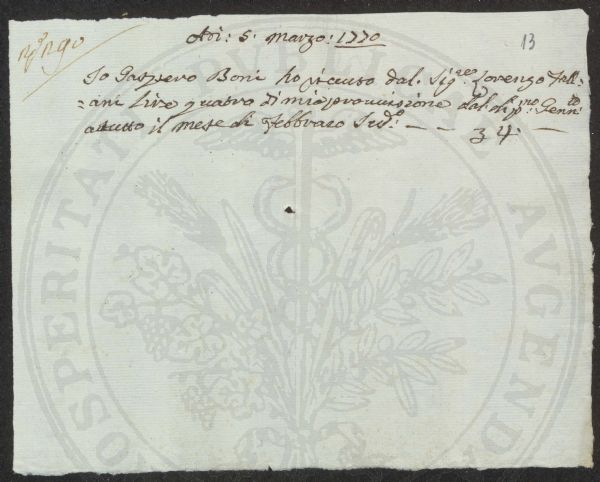 Adi: 5: Marzo: 1770
13
Io Gaspero Boni ho riceuto dal. Sig:re Lorenzo
ani Lire quatro di mia provvisione dal dì p:mo Genn:
a tutto il mese di Febbraro Sud:o — — 4: —
PROSPERITATI PUBLICAE AUGENDAE